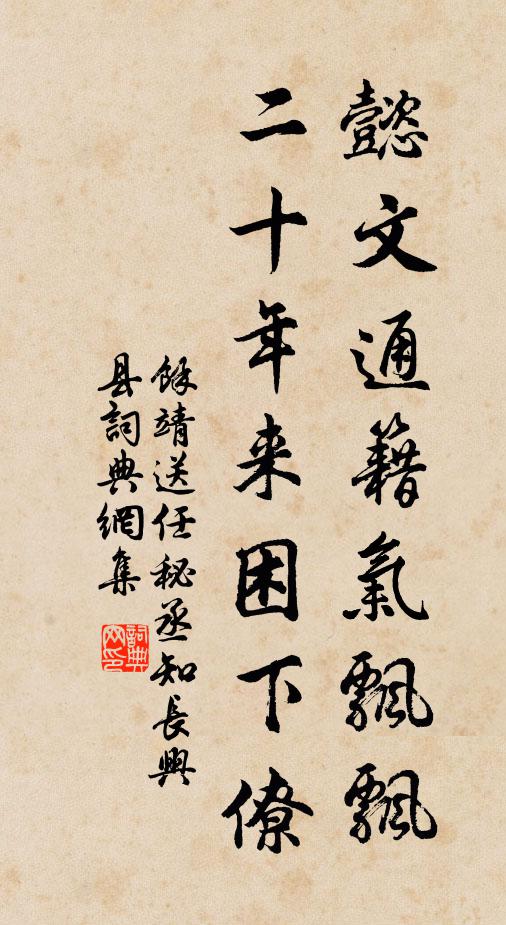 懿文通籍氣飄飄
二十年来困下僚
餘靖送任秘丞知長興
县詞典網集
詞典网印